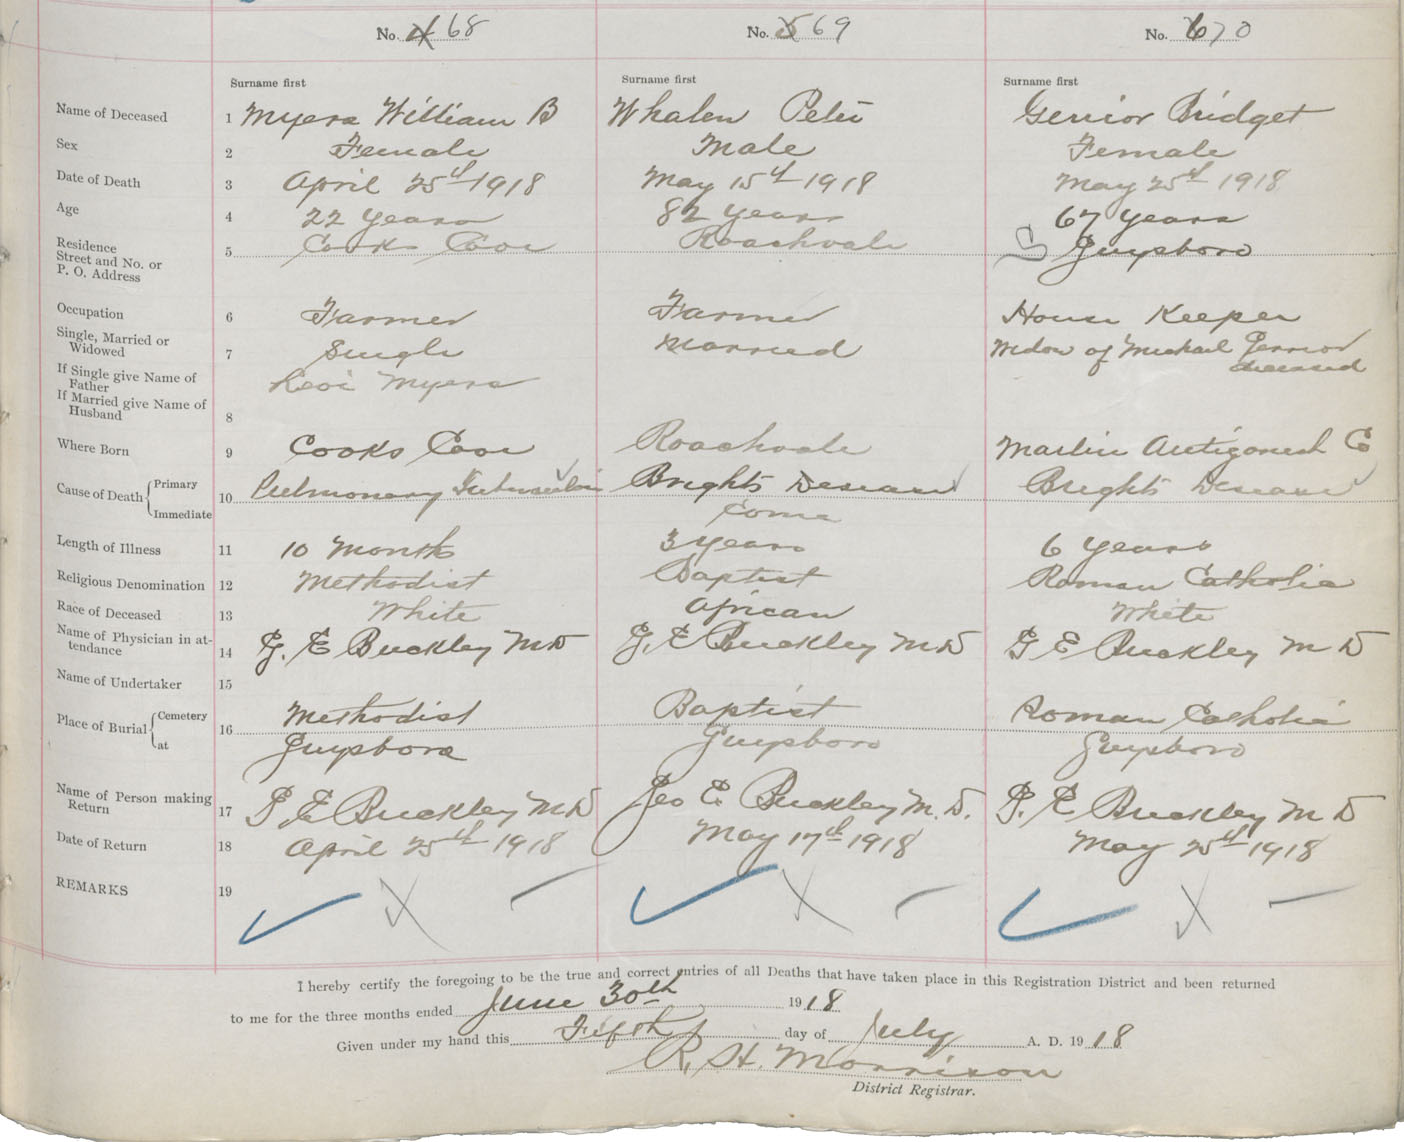 No. 4 68 No. 5 69 No. 6 70
Surname first Surname first Surname first
Name of Deceased 1 Myers William B Whalen Peter Gerrior Bridget
Sex 2 Female Male Female
Date of Death 3 April 25th 1918 May 15th 1918 May 25th 1918
Age 4 22 Years 82 Years 67 Years
Residence Street and No. or P. O. Address 5 Cooks Cove Roachvale Guysboro
Occupation 6 Farmer Farmer House Keeper
Single, Married or Widowed 7 Single Married Widow of Michael Gerrior
deceased
If Single give Name of Father Levi Myers
If Married give Name of Husband 8
Where Born 9 Cooks Cove Roachvale Antigonish Co
Cause of Death Primary 10 Pulmonary Tuberculosis Brights Disease Brights Disease
Immediate Coma
Length of Illness 11 10 Months 3 Years 6 Years
Religious Denomination 12 Methodist Baptist Roman Catholic
Race of Deceased 13 White African White
Name of Physician in attendance 14 G. E Buckley MD G. E Buckley MD G E Buckley M D
Name of Undertaker 15
Place of Burial Cemetery 16 Methodist Baptist Roman Catholic
at Guysboro Guysboro Guysboro
Name of Person making Return 17 G E Buckley MD Geo E Buckley M.D. G. E Buckley M D
Date of Return 18 April 25th 1918 May 17th 1918 May 25th 1918
REMARKS 19
I hereby certify the foregoing to be the true and correct entries of all Deaths that have taken place in this Registration District and been returned
to me for the three months ended June 30th 1918
Given under my hand this Fifth day of July A. D. 1918
R. H. Morrison
District Registrar.